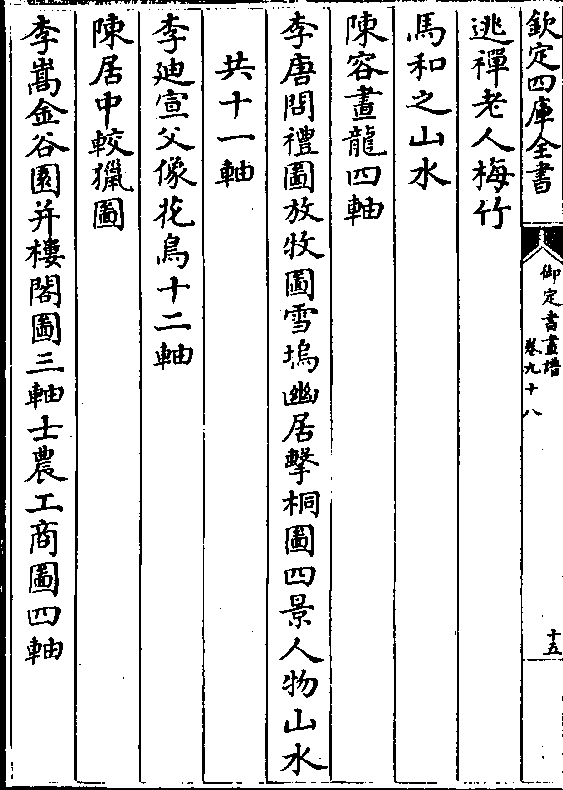 欽定四庫全書
御定書畫譜
卷九十八
十五
逃禪老人梅竹
馬和之山水
陳容畫龍四軸
李唐問禮圖放牧圖雪塢幽居擊桐圖四景人物山水
共十一軸
李廸宣父像花鳥十二軸
陳居中較獵圖
李嵩金谷園并樓閣圖三軸士農工商圖四軸